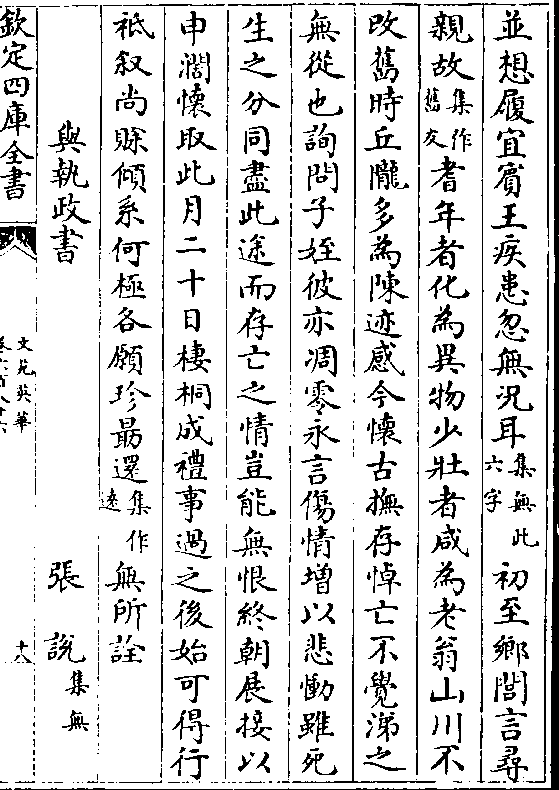 並想履宜賓王疾患忽無況耳集無此六字初至鄉閭言尋
親故集作舊友耆年者化為異物少壯者咸為老翁山川不
改舊時丘隴多為陳迹感今懷古撫存悼亡不覺涕之
無從也詢問子姪彼亦凋零永言傷情增以悲慟雖死
生之分同盡此途而存亡之情豈能無恨終朝展接以
申濶懷取此月二十日棲桐成禮事過之後始可得行
祗叙尚賒傾系何極各願珍勗還集作遠無所詮
與執政書 張說集無
欽定四庫全書
文苑英華
十八